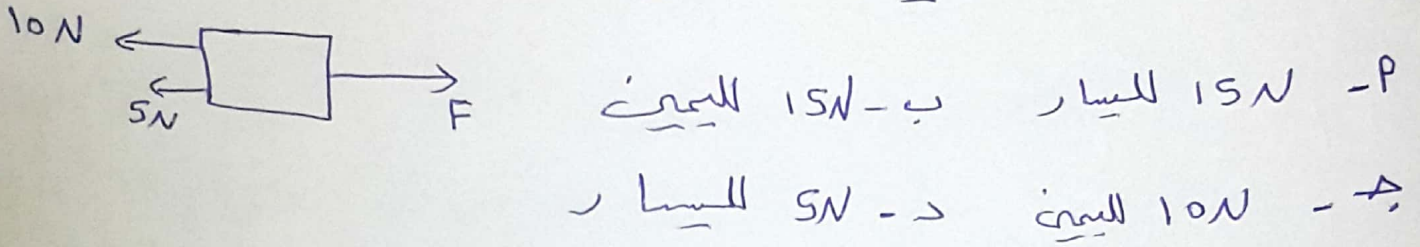 10 N
5N
F
أ- 15N لليسار ب- 15N لليمين
جـ - 10N لليمين د- 5N لليسار